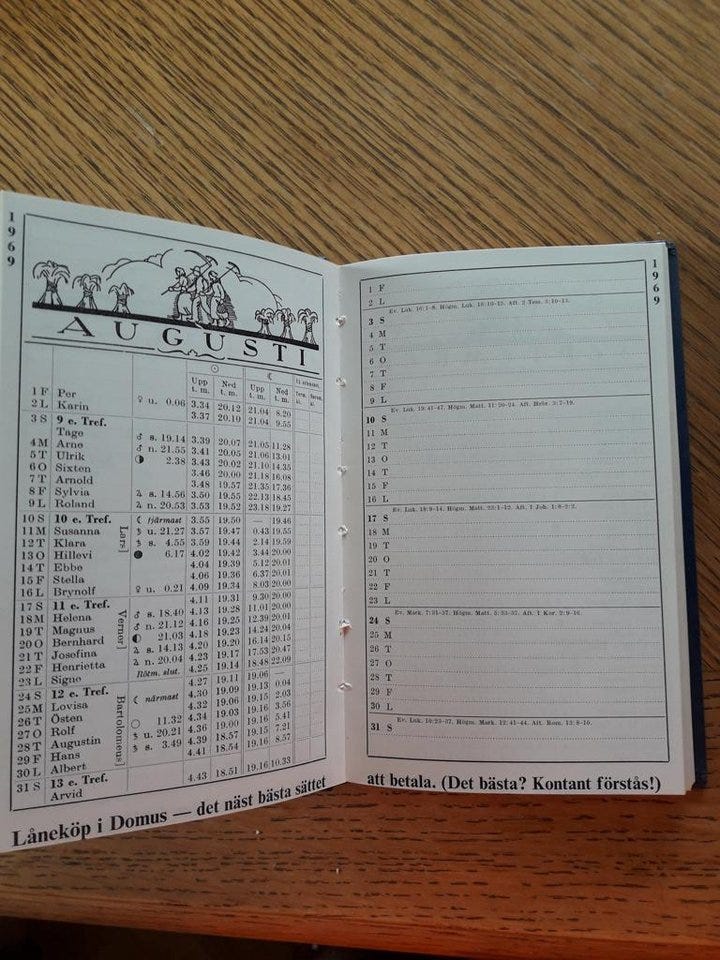 1969
AUGUSTI
Upp t. m. Ned t. m. Upp t. m. Ned t. m.
1 F Per ♀ u. 0.06 3.34 20.12 21.04 8.20
2 L Karin 3.37 20.10 21.04 9.55
3 S 9 e. Tref.
Tage ♂ s. 19.14 3.39 20.07 21.05 11.28
4 M Arne ♂ n. 21.55 3.41 20.05 21.06 13.01
5 T Ulrik 2.38 3.43 20.02 21.10 14.35
6 O Sixten 3.46 20.00 21.18 16.08
7 T Arnold 3.48 19.57 21.35 17.36
8 F Sylvia ♃ s. 14.56 3.50 19.55 22.13 18.45
9 L Roland ♃ n. 20.53 3.53 19.52 23.18 19.27
10 S 10 e. Tref. ☾ fjärmast 3.55 19.50 — 19.46
Lars]
11 M Susanna ♄ u. 21.27 3.57 19.47 0.43 19.55
12 T Klara ♄ s. 4.55 3.59 19.44 2.14 19.59
13 O Hillevi 6.17 4.02 19.42 3.44 20.00
14 T Ebbe 4.04 19.39 5.12 20.01
15 F Stella 4.06 19.36 6.37 20.01
16 L Brynolf ♀ u. 0.21 4.09 19.34 8.03 20.00
17 S 11 e. Tref. 4.11 19.31 9.30 20.00
Verner]
18 M Helena ♂ s. 18.40 4.13 19.28 11.01 20.00
19 T Magnus ♂ n. 21.12 4.16 19.25 12.39 20.01
20 O Bernhard 21.03 4.18 19.23 14.24 20.04
21 T Josefina ♃ s. 14.13 4.20 19.20 16.14 20.15
22 F Henrietta ♃ n. 20.04 4.23 19.17 17.53 20.47
23 L Signe Rötm. slut. 4.25 19.14 18.48 22.09
24 S 12 e. Tref. 4.27 19.11 19.06 —
Bartolomeus]
25 M Lovisa ☾ närmast 4.30 19.09 19.13 0.04
26 T Östen 4.32 19.06 19.15 2.03
27 O Rolf 11.32 4.34 19.03 19.16 3.56
28 T Augustin ♄ u. 20.21 4.36 19.00 19.16 5.41
29 F Hans ♄ s. 3.49 4.39 18.57 19.15 7.21
30 L Albert 4.41 18.54 19.16 8.57
31 S 13 e. Tref.
Arvid 4.43 18.51 19.16 10.33
Låneköp i Domus — det näst bästa sättet
1969
1 F
2 L
Ev. Luk. 16:1-8. Högm. Luk. 16:10-15. Aft. 2 Tess. 3:10-13.
3 S
4 M
5 T
6 O
7 T
8 F
9 L
Ev. Luk. 19:41-47. Högm. Matt. 11:20-24. Aft. Hebr. 3:7-19.
10 S
11 M
12 T
13 O
14 T
15 F
16 L
Ev. Luk. 18:9-14. Högm. Matt. 23:1-12. Aft. 1 Joh. 1:8-2:2.
17 S
18 M
19 T
20 O
21 T
22 F
23 L
Ev. Mark. 7:31-37. Högm. Matt. 5:33-37. Aft. 1 Kor. 2:9-16.
24 S
25 M
26 T
27 O
28 T
29 F
30 L
Ev. Luk. 10:23-37. Högm. Mark. 12:41-44. Aft. Rom. 13:8-10.
31 S
att betala. (Det bästa? Kontant förstås!)